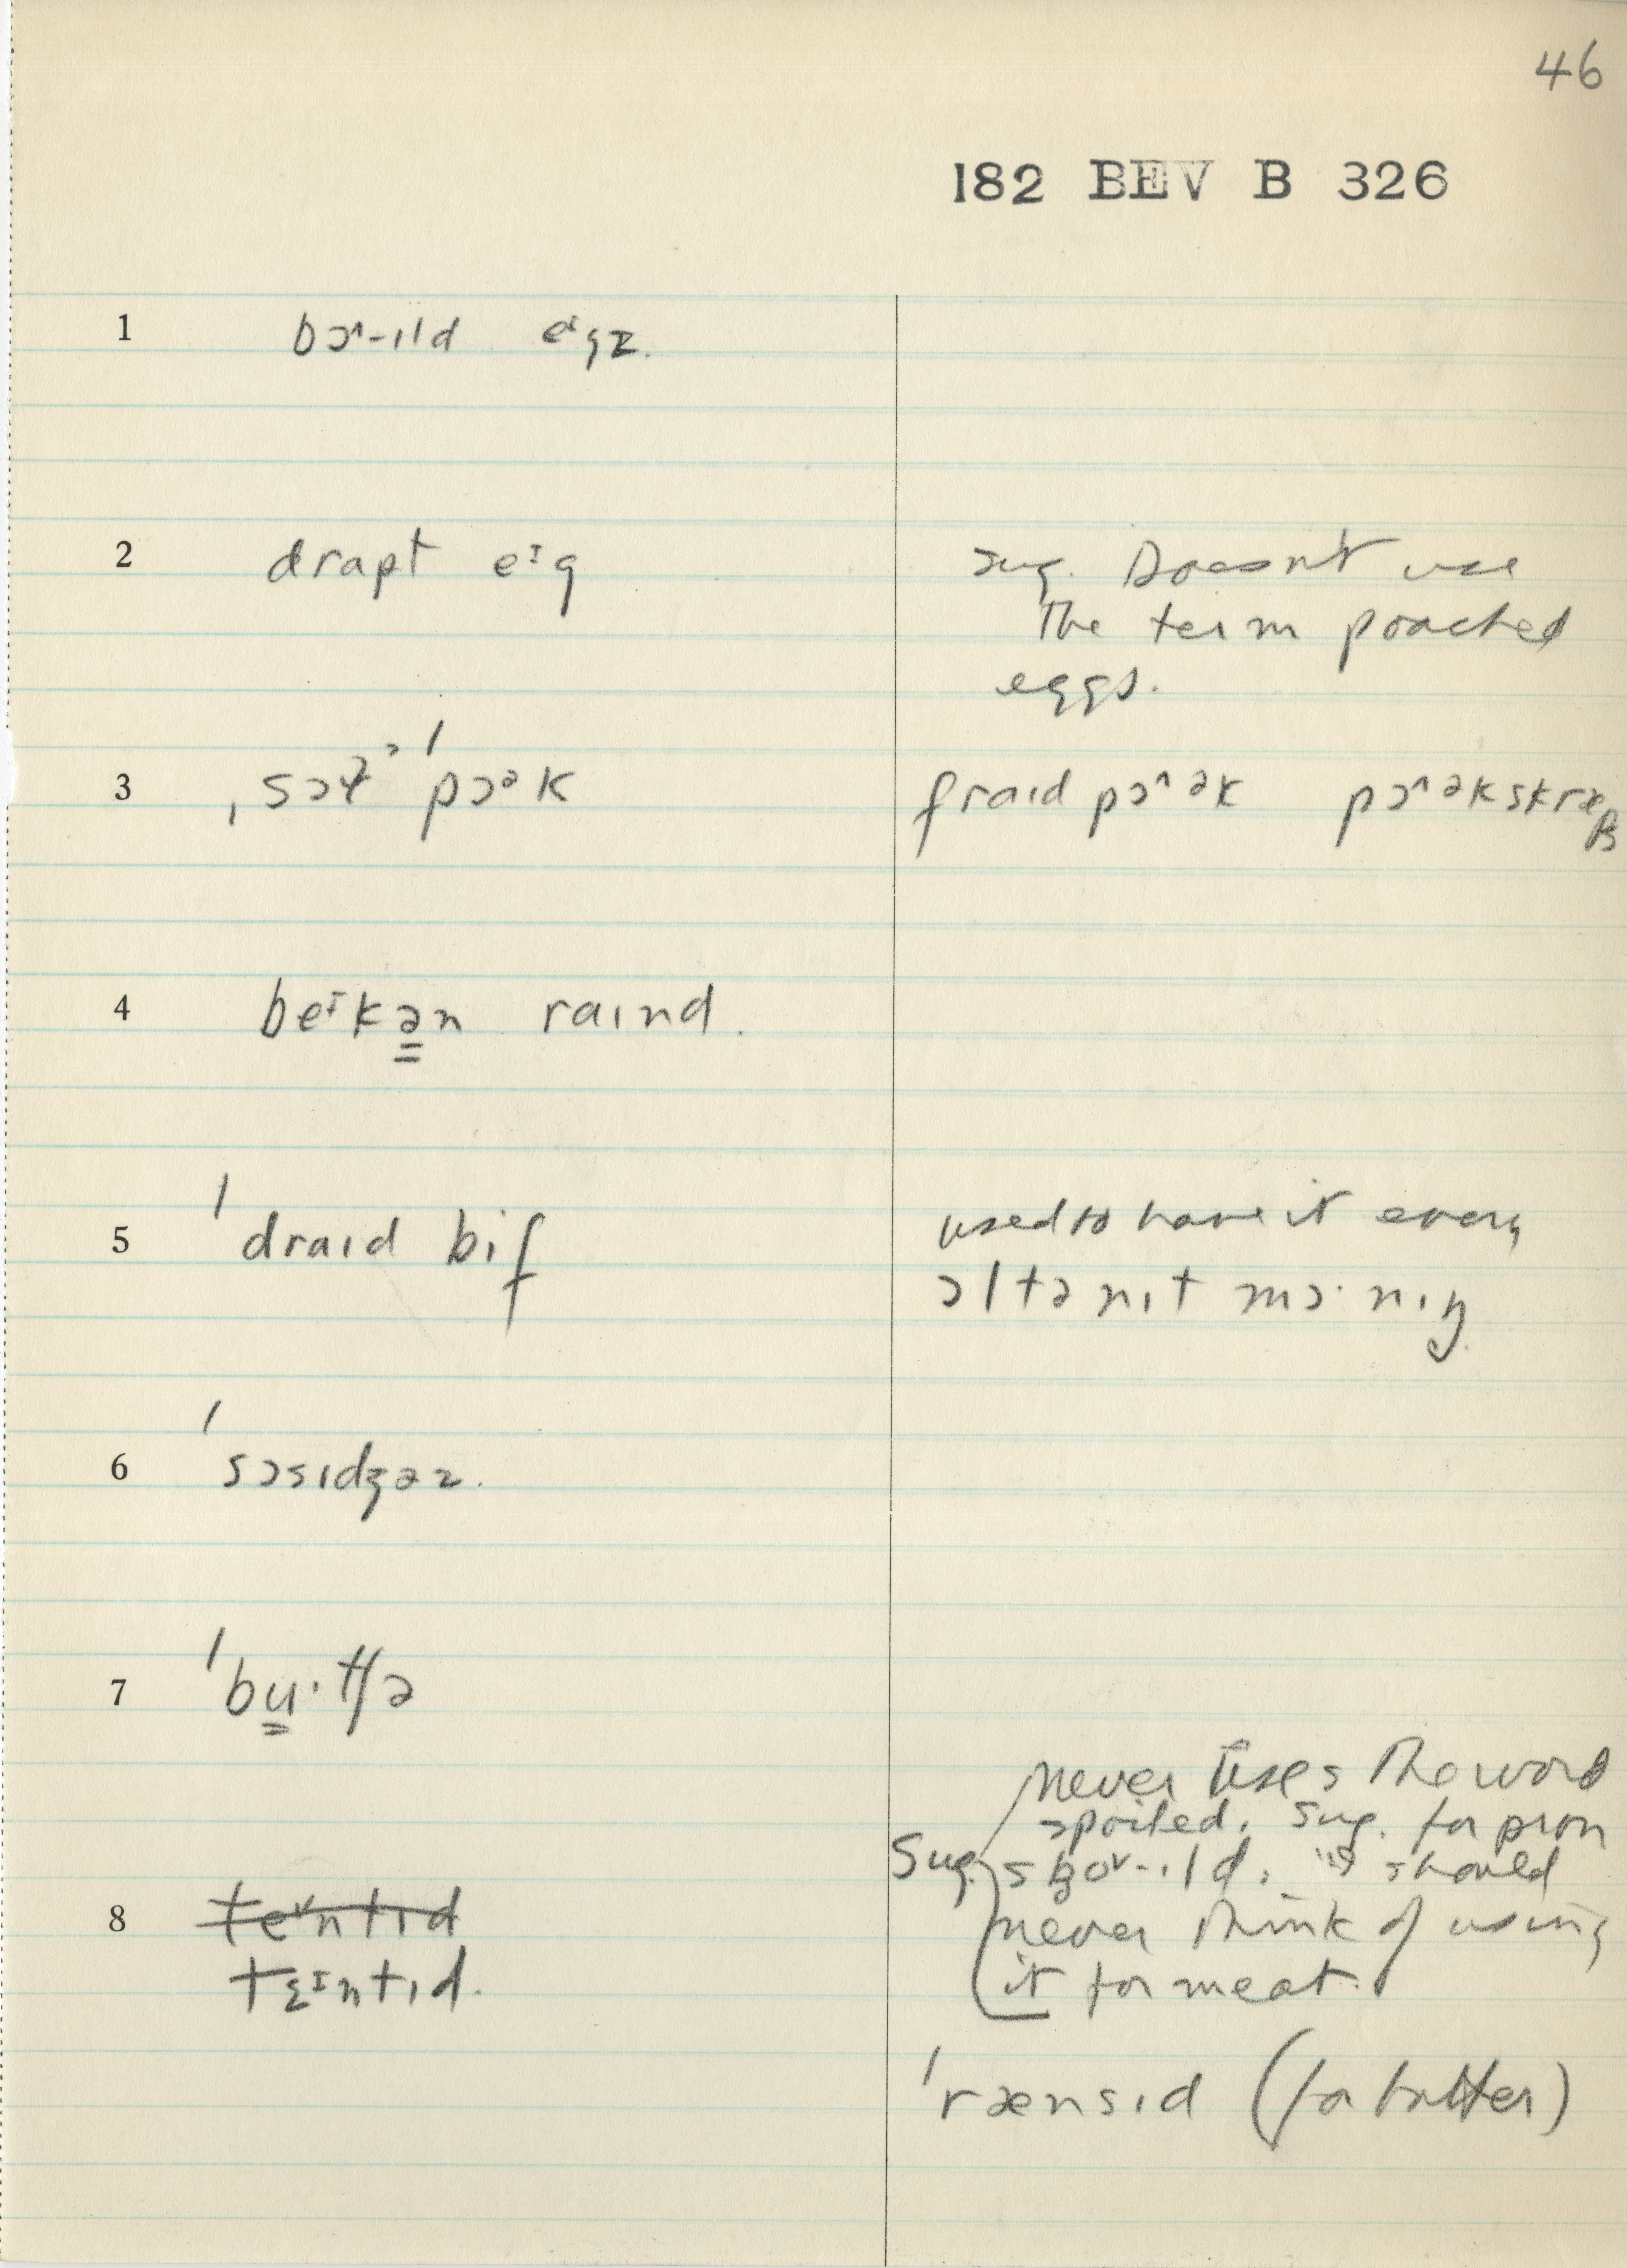 46
182 BEV B 326
1 bɔ^-ɪld eᶦgz.
2 drapt eᶦg
sug. Doesn't use
the term poached
eggs.
3 ˌsɔɫt ˈpɔᵊk
fraɪd pɔ^ək pɔ^əkskræp
4 beᶦkə̳n raɪnd.
5 ˈdraɪd bif
used to have it every
ɔltənɪt mɔˑnɪŋ
6 ˈsɔsɪdʒəz.
7 ˈbu̳ˑtʃə
never uses the word
spoiled. Sug. for pron
Sug. spo^v-ɪld. should
never think of using
it for meat.
8 teᵛntɪd
tɛᶦntɪd.
ˈrænsɪd (for butter)